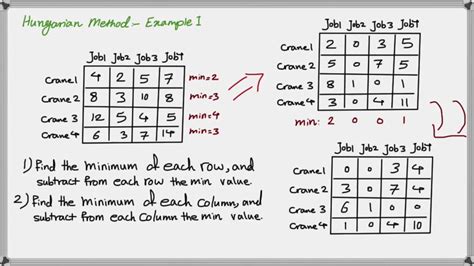 Hungarian Method:- Example 1
Job1 Job2 Job3 Job4
Crane1 4 2 5 7 min=2
Crane 2 8 3 10 8 min=3
Crane 3 12 5 4 5 min=4
Crane 4 6 3 7 14 min=3
Job1 Job2 Job3 Job4
Crane1 2 0 3 5
Crane 2 5 0 7 5
Crane 3 8 1 0 1
Crane 4 3 0 4 11
min: 2 0 0 1
1) Find the minimum of each row, and
subtract from each row the min value.
2) Find the minimum of each column, and
subtract from each column the min value.
Job1 Job2 Job3 Job4
Crane1 0 0 3 4
Crane 2 3 0 7 4
Crane 3 6 1 0 0
Crane 4 1 0 4 10